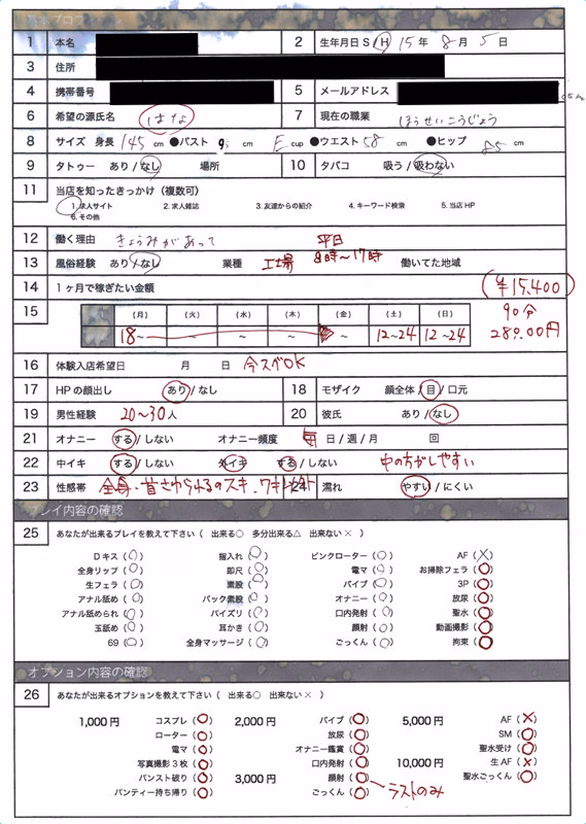 基本プロフィール
1 本名 2 生年月日 S / H 15年 8月 5日
3 住所
4 携帯番号 5 メールアドレス
6 希望の源氏名 はな 7 現在の職業 ほうせいこうじょう
8 サイズ 身長 145 cm ●バスト cm E cup ●ウエスト 58 cm ●ヒップ 85 cm
9 タトゥー あり / なし 場所 10 タバコ 吸う / 吸わない
11 当店を知ったきっかけ(複数可)
1. 求人サイト 2. 求人雑誌 3. 友達からの紹介 4. キーワード検索 5. 当店 HP
6. その他
12 働く理由 きょうみがあって 平日
13 風俗経験 あり / なし 業種 工場 8時〜17時 働いてた地域
14 1ヶ月で稼ぎたい金額 (¥15,400)
90分
28000円
15 (月) (火) (水) (木) (金) (土) (日)
18〜 〜 〜 〜 〜 12〜24 12〜24
16 体験入店希望日 月 日 今スグOK
17 HPの顔出し あり / なし 18 モザイク 顔全体 / 目 / 口元
19 男性経験 20〜30人 20 彼氏 あり / なし
21 オナニー する / しない オナニー頻度 毎 日 / 週 / 月 回
22 中イキ する / しない 外イキ する / しない 中の方がしやすい
23 性感帯 全身・首さわられるのスキ、ワキ 24 濡れ やすい / にくい
プレイ内容の確認
25 あなたが出来るプレイを教えて下さい ( 出来る○ 多分出来る△ 出来ない× )
Dキス (○) 指入れ (○) ピンクローター (○) AF (×)
全身リップ (○) 即尺 (○) 電マ (○) お掃除フェラ (○)
生フェラ (○) 素股 (○) バイブ (○) 3P (○)
アナル舐め (○) バック素股 (○) オナニー (○) 放尿 (○)
アナル舐められ (○) パイズリ (○) 口内発射 (○) 聖水 (○)
玉舐め (○) 耳かき (○) 顔射 (○) 動画撮影 (○)
69 (○) 全身マッサージ (○) ごっくん (○) 拘束 (○)
オプション内容の確認
26 あなたが出来るオプションを教えて下さい ( 出来る○ 出来ない× )
1,000円 コスプレ (○) 2,000円 バイブ (○) 5,000円 AF (×)
ローター (○) 放尿 (○) SM (○)
電マ (○) オナニー鑑賞 (○) 聖水受け (○)
写真撮影3枚 (○) 口内発射 (○) 10,000円 生AF (×)
パンスト破り (○) 3,000円 顔射 (○) 聖水ごっくん (○)
パンティー持ち帰り (○) ごっくん (○) ラストのみ